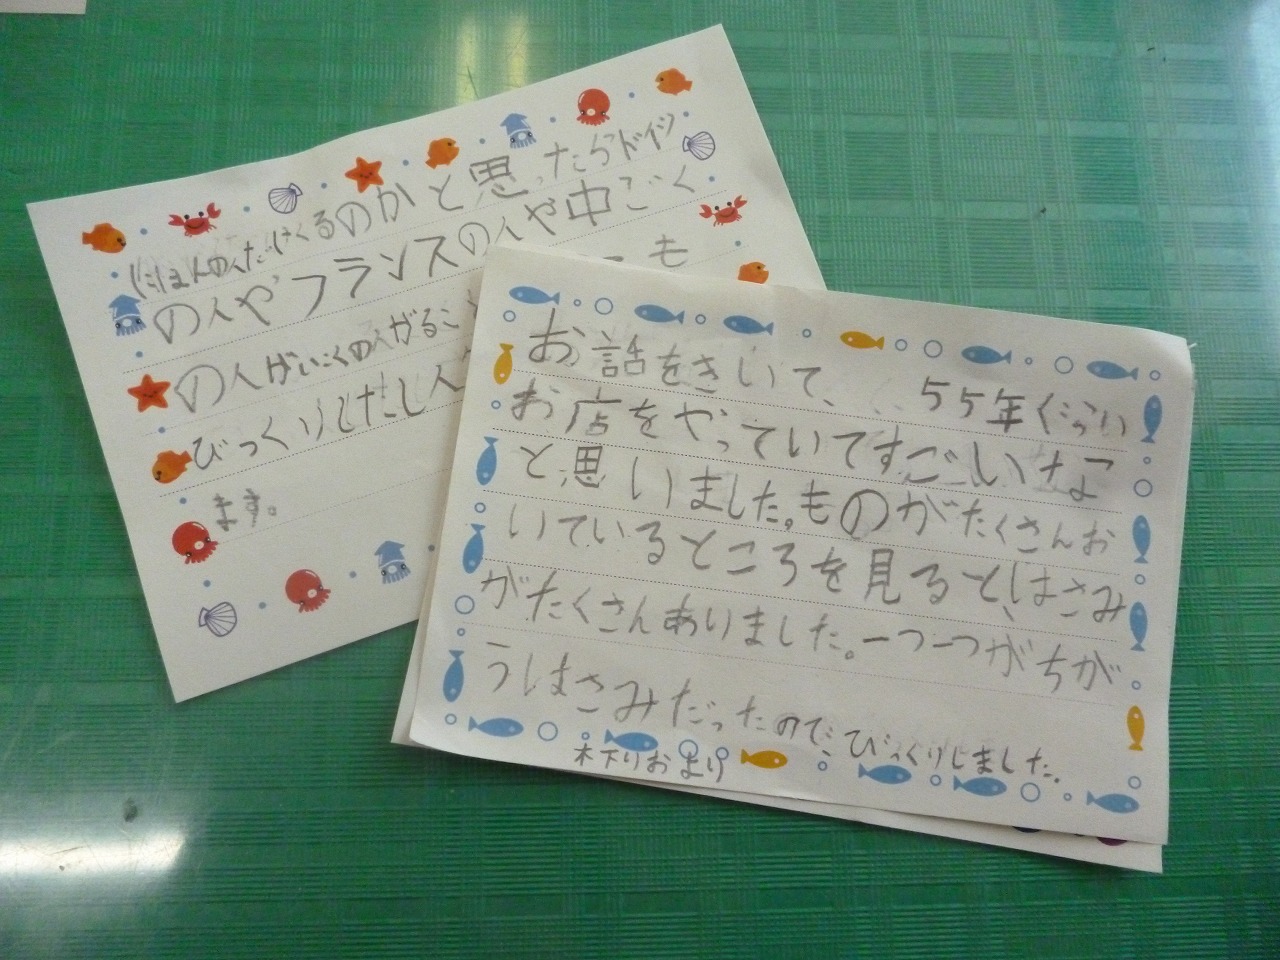 にほんの人だけくるのかと思ったらドイツ
の人やフランスの人や中ごく
の人がいくの人がるこ
びっくりしたし人
ます。
も
お話をきいて、55年ぐらい
お店をやっていてすごいなよ
と思いました。ものがたくさんお
いているところを見ると、はさみ
がたくさんありました。一つ一つがちが
うはさみだったので、びっくりしました。
木下りおより